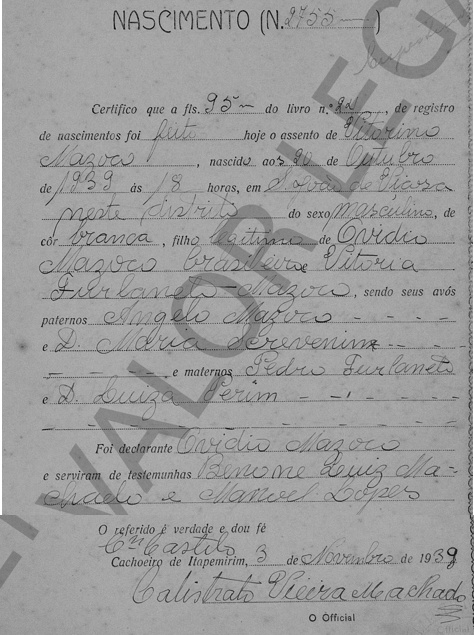 NASCIMENTO (N. 2755 —)
Certifico que a fls. 95 — do livro n.º 22, de registro
de nascimentos foi feito hoje o assento de Vitorino
Mazoco, nascido aos 20 de Outubro
de 1939 às 18 horas, em de Viçosa
neste distrito do sexo masculino, de
côr branca, filho legitimo de Ovidio
Mazoco brasileiro e Vitoria
Furlaneto Mazoco, sendo seus avós
paternos Angelo Mazoco - - - -
e D. Maria - -
- - - - - e maternos Pedro Furlaneto
e D. Luiza Perim - - - - -
- - - - - - - - - -
Foi declarante Ovidio Mazoco
e serviram de testemunhas Benone Luiz Ma-
chado e Manoel Lopes
O referido é verdade e dou fé
Castelo
Cachoeiro de Itapemirim, 3 de Novembro de 1939
Calistrato Vieira Machado
O Official